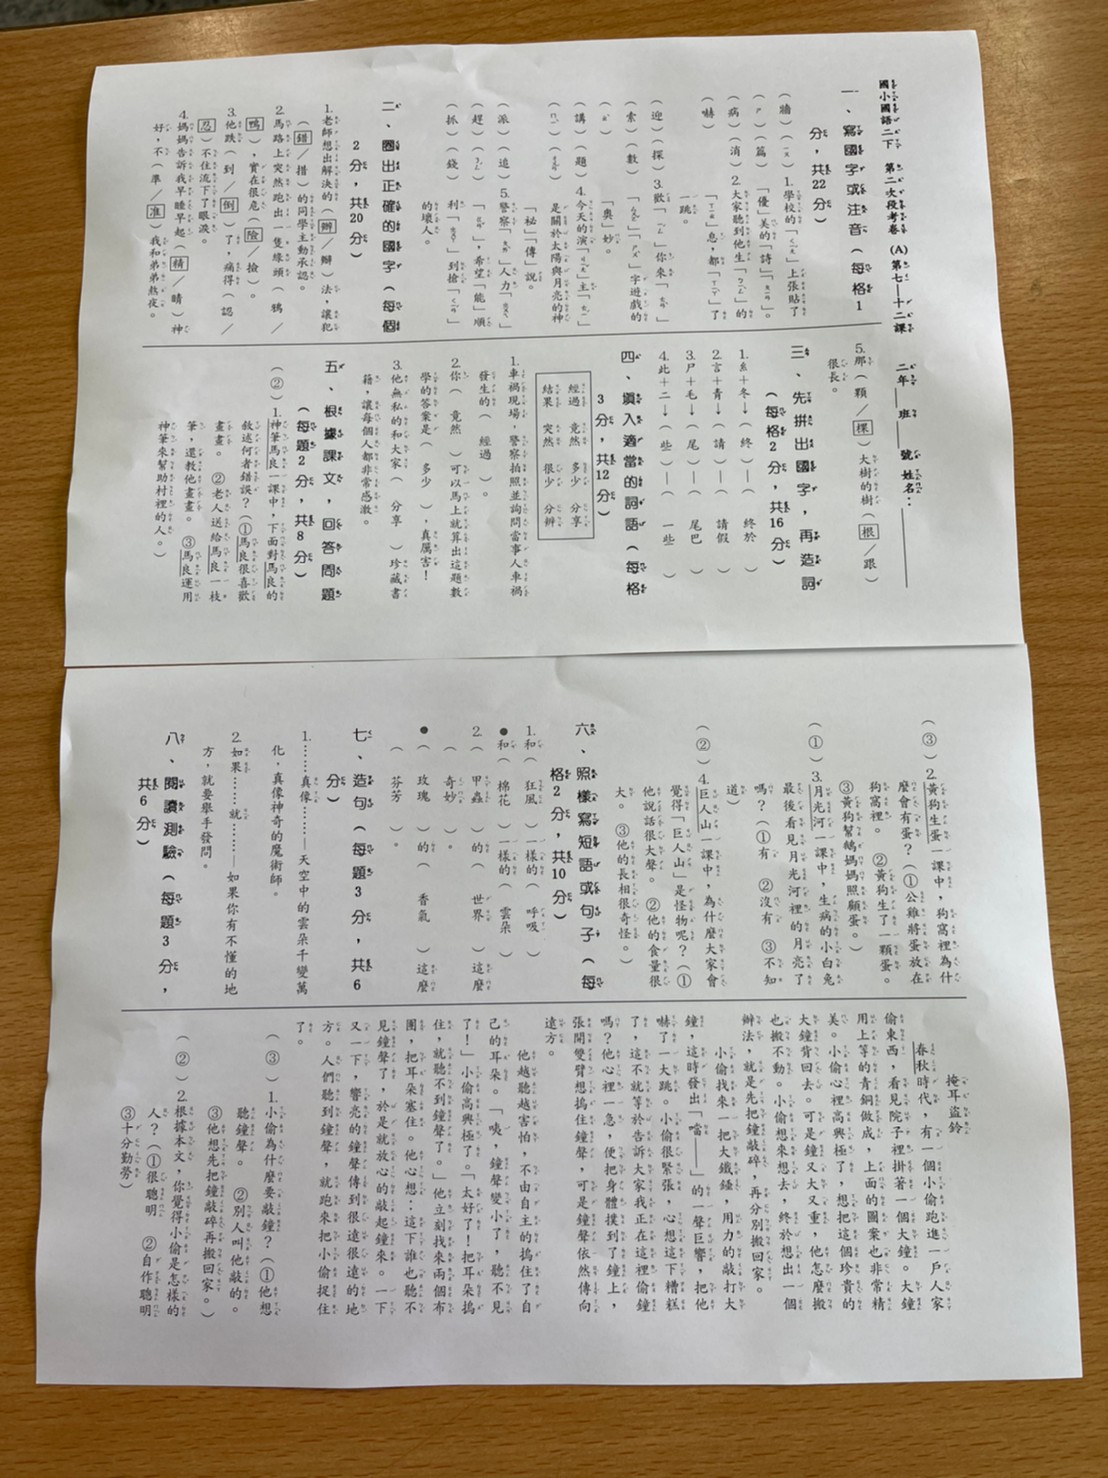 國小國語二下　第二次段考卷 (A) 第七—十二課　二年　班　號 姓名：
一、寫國字或注音（每格1分，共22分）
（牆）（ㄧㄡ）1.學校的「ㄑㄧㄤˊ」上張貼了
（ㄕ）（篇）「優」美的「詩」「ㄆㄧㄢ」。
（病）（消）2.大家聽到他生「ㄅㄧㄥˋ」的
（嚇）「ㄒㄧㄠ」息，都「ㄒㄧㄚˋ」了
一跳。
（迎）（探）3.歡「ㄧㄥˊ」你來「ㄊㄢˋ」
（索）（數）「ㄙㄨㄛˇ」「ㄕㄨˋ」字遊戲的
（ㄠˋ）「奧」妙。
（講）（題）4.今天的演「ㄐㄧㄤˇ」主「ㄊㄧˊ」
（ㄇㄧˋ）（ㄔㄨㄢˊ）是關於太陽與月亮的神
「祕」「傳」說。
（派）（追）5.警察「ㄆㄞˋ」人力「ㄓㄨㄟ」
（趕）（ㄋㄥˊ）「ㄍㄢˇ」，希望「能」順
（抓）（錢）利「ㄓㄨㄚ」到搶「ㄑㄧㄢˊ」
的壞人。
二、圈出正確的國字（每個
2分，共20分）
1.老師想出解決的（辦／辯）法，讓犯
（錯／措）的同學主動承認。
2.馬路上突然跑出一隻綠頭（鴉／
鴨），實在很危（險／撿）。
3.他跌（到／倒）了，痛得（認／
忍）不住流下了眼淚。
4.媽媽告訴我早睡早起（精／晴）神
好，不（準／准）我和弟弟熬夜。
5.那（顆／棵）大樹的樹（根／跟）
很長。
三、先拼出國字，再造詞
（每格2分，共16分）
1.糸＋冬→（終）—（終於）
2.言＋青→（請）—（請假）
3.尸＋毛→（尾）—（尾巴）
4.此＋二→（些）—（一些）
四、填入適當的詞語（每格
3分，共12分）
經過　竟然　多少　分享
結果　突然　很少　分辨
1.車禍現場，警察拍照並詢問當事人車禍
發生的（經過）。
2.你（竟然）可以馬上就算出這題數
學的答案是（多少），真厲害！
3.他無私的和大家（分享）珍藏書
籍，讓每個人都非常感激。
五、根據課文，回答問題
（每題2分，共8分）
（②）1.神筆馬良一課中，下面對馬良的
敘述何者錯誤？（①馬良很喜歡
畫畫。　②老人送給馬良一枝
筆，還教他畫畫。　③馬良運用
神筆來幫助村裡的人。）
（③）2.黃狗生蛋一課中，狗窩裡為什
麼會有蛋？（①公雞將蛋放在
狗窩裡。　②黃狗生了一顆蛋。
③黃狗幫鵝媽媽照顧蛋。）
（①）3.月光河一課中，生病的小白兔
最後看見月光河裡的月亮了
嗎？（①有　②沒有　③不知
道）
（②）4.巨人山一課中，為什麼大家會
覺得「巨人山」是怪物呢？（①
他說話很大聲。　②他的食量很
大。　③他的長相很奇怪。）
六、照樣寫短語或句子（每
格2分，共10分）
1.和（狂風）一樣的（呼吸）
●和（棉花）一樣的（雲朵）
2.（甲蟲）的（世界）這麼
（奇妙）。
●（玫瑰）的（香氣）這麼
（芬芳）。
七、造句（每題3分，共6
分）
1.……真像……—天空中的雲朵千變萬
化，真像神奇的魔術師。
2.如果……就……—如果你有不懂的地
方，就要舉手發問。
八、閱讀測驗（每題3分，
共6分）
掩耳盜鈴
春秋時代，有一個小偷跑進一戶人家
偷東西，看見院子裡掛著一個大鐘。大鐘
用上等的青銅做成，上面的圖案也非常精
美。小偷心裡高興極了，想把這個珍貴的
大鐘背回去。可是鐘又大又重，他怎麼搬
也搬不動。小偷想來想去，終於想出一個
辦法，就是先把鐘敲碎，再分別搬回家。
小偷找來一把大鐵錘，用力的敲打大
鐘，這時發出「噹——」的一聲巨響，把他
嚇了一大跳。小偷很緊張，心想這下糟糕
了，這不就等於告訴大家我正在這裡偷鐘
嗎？他心裡一急，便把身體撲到了鐘上，
張開雙臂想摀住鐘聲，可是鐘聲依然傳向
遠方。
他越聽越害怕，不由自主的摀住了自
己的耳朵。「咦，鐘聲變小了，聽不見
了！」小偷高興極了。「太好了！把耳朵摀
住，就聽不到鐘聲了。」他立刻找來兩個布
團，把耳朵塞住。他心想：這下誰也聽不
見鐘聲了，於是就放心的敲起鐘來。一下
又一下，響亮的鐘聲傳到很遠很遠的地
方。人們聽到鐘聲，就跑來把小偷捉住
了。
（③）1.小偷為什麼要敲鐘？（①他想
聽鐘聲。　②別人叫他敲的。
③他想先把鐘敲碎再搬回家。）
（②）2.根據本文，你覺得小偷是怎樣的
人？（①很聰明　②自作聰明
③十分勤勞）